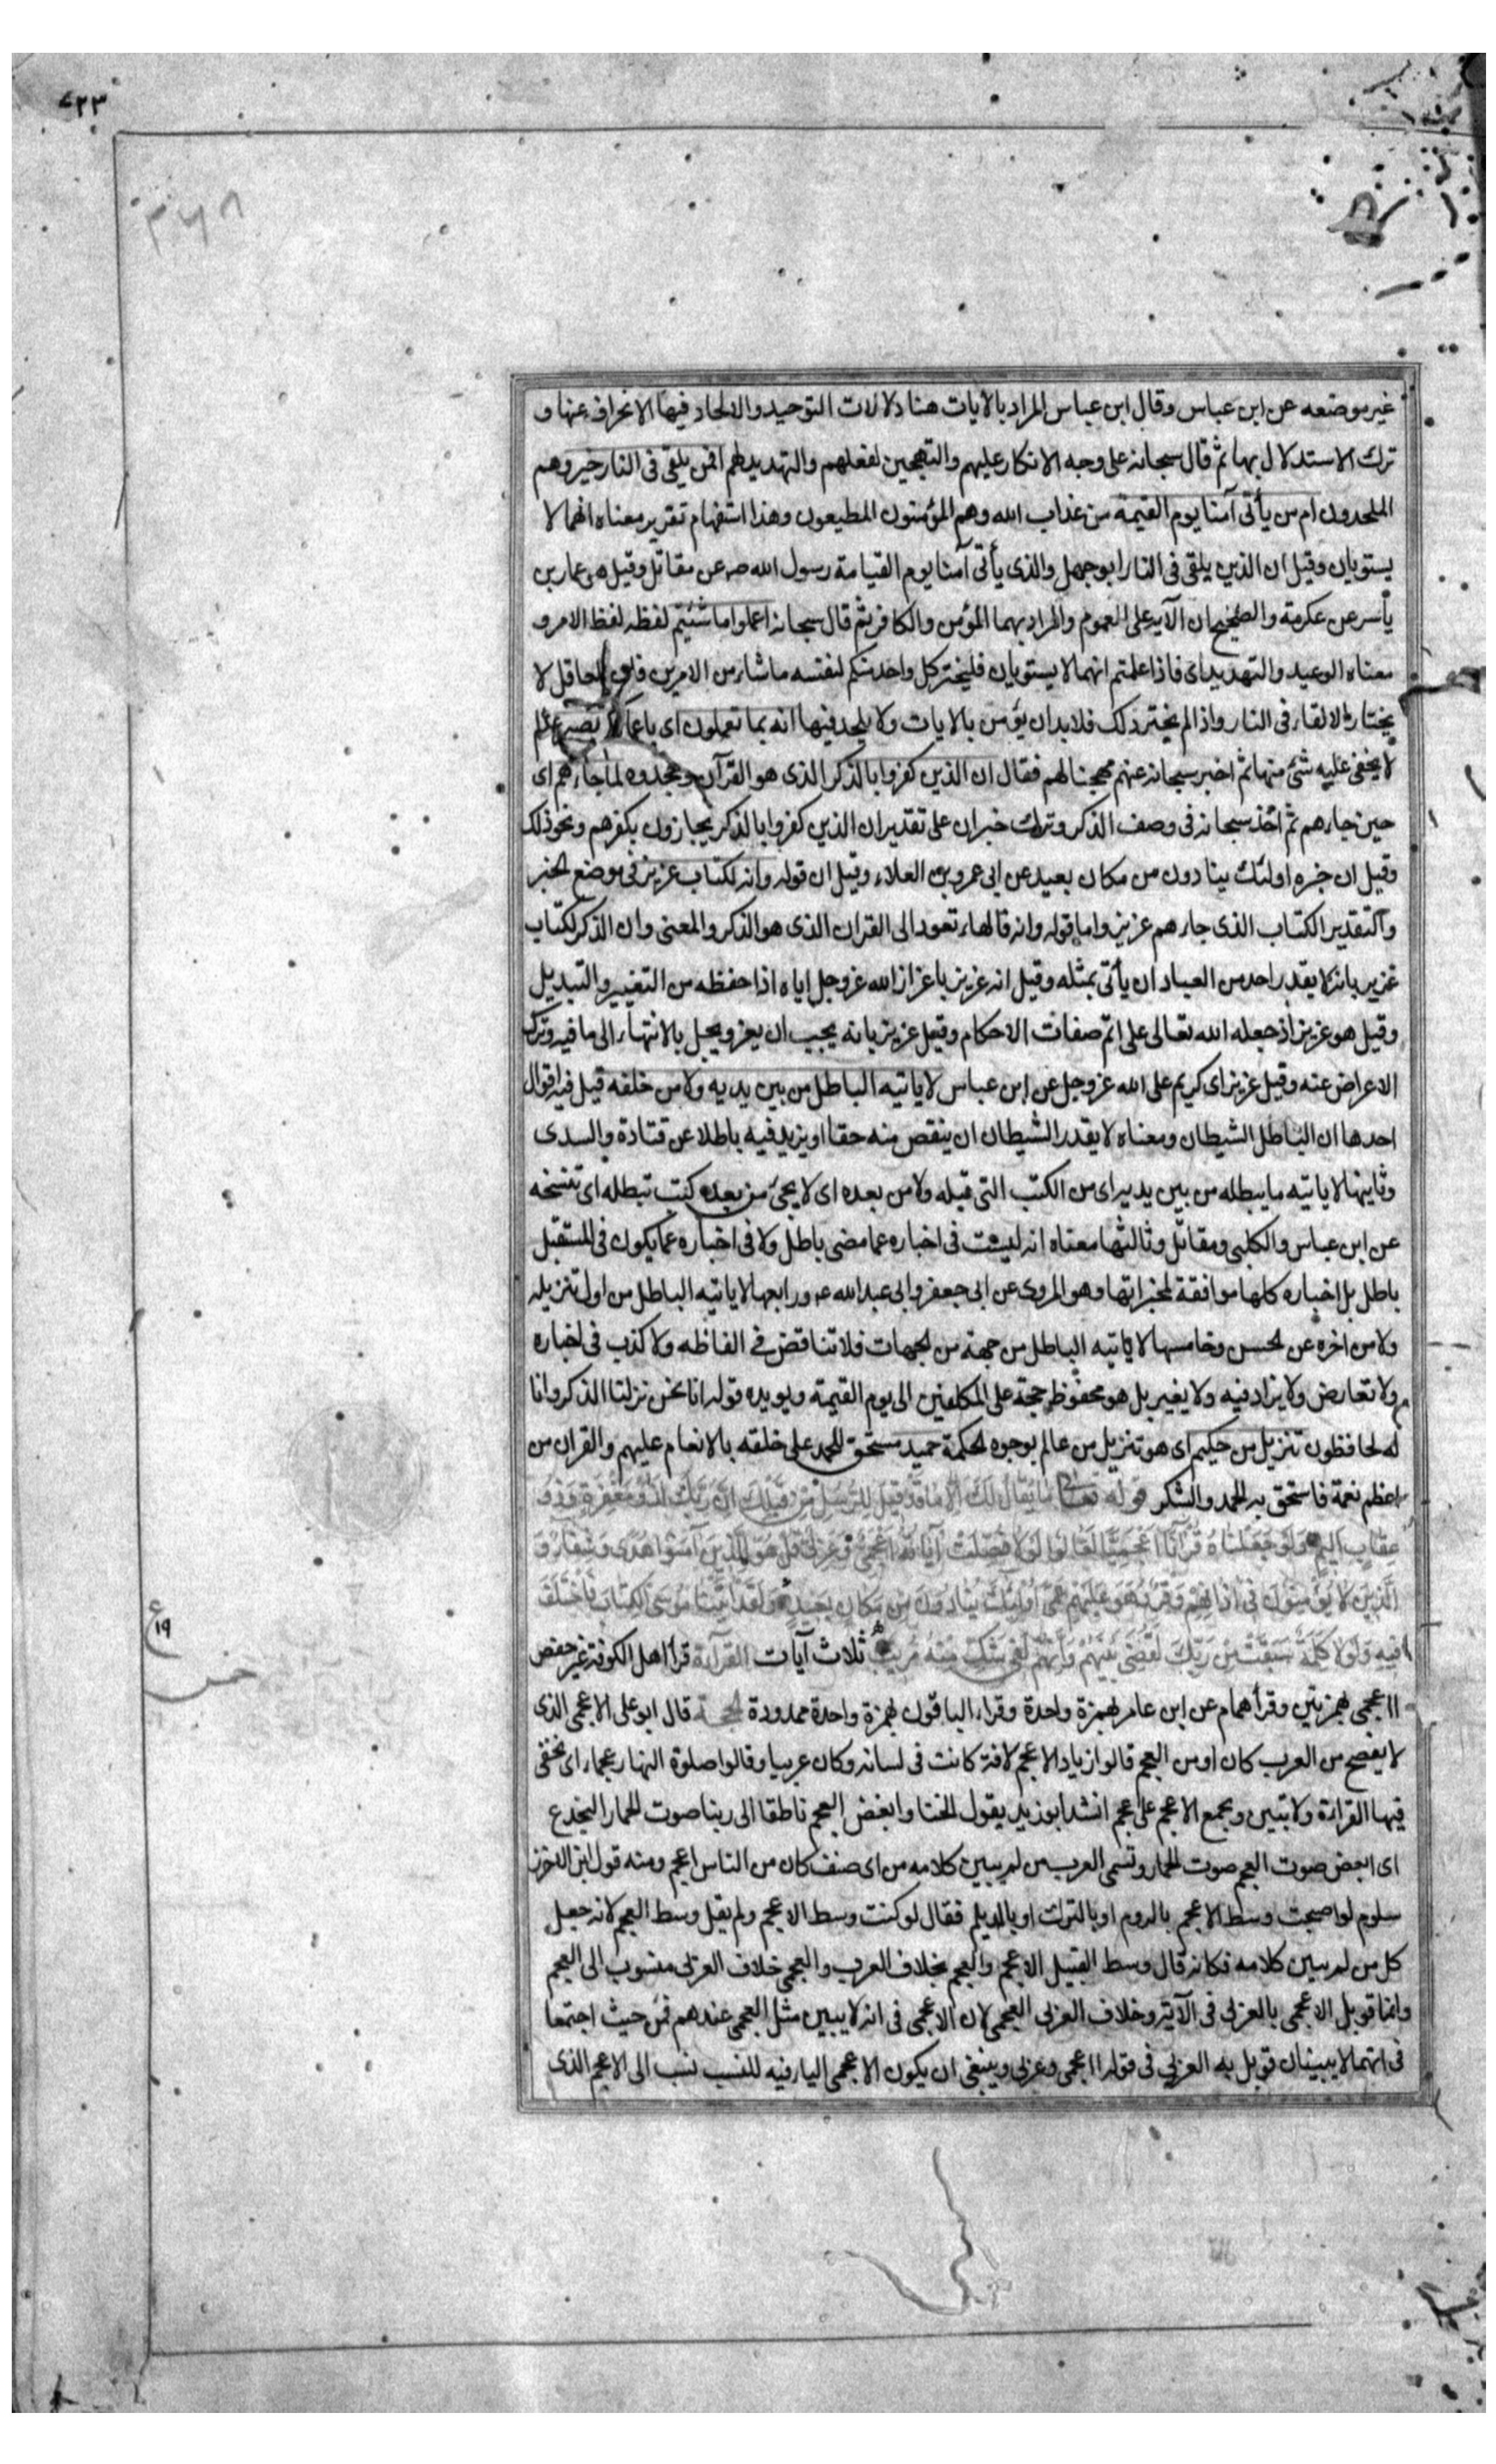 ٤٢٣
غير موضعه عن ابن عباس وقال ابن عباس المراد بالآيات هنا دلالات التوحيد والالحاد فيها الانحراف عنها و
ترك الاستدلال بها ثم قال سبحانه على وجه الانكار عليهم والتهجين لفعلهم والتهديد لهم افمن يلقى فى النار خير وهم
الملحدون ام من يأتى آمنا يوم القيمة من عذاب الله وهم المؤمنون المطيعون وهذا استفهام تقرير معناه انهما لا
يستويان وقيل ان الذين يلقى فى النار ابوجهل والذى يأتى آمنا يوم القيامة رسول الله صه عن مقاتل وقيل هو عمار بن
يأسر عن عكرمة والصحيح ان الآيه على العموم والمراد بهما المؤمن والكافر ثم قال سبحانه اعملوا ما شئتم لفظه لفظ الامر و
معناه الوعيد والتهديد اى فاذا علمتم انهما لا يستويان فليختر كل واحد منكم لنفسه ما شاء من الامرين فان العاقل لا
يختار الالقاء فى النار واذا لم يختر ذلك فلابد ان يؤمن بالايات ولا يلحد فيها انه بما تعملون اى باعمالكم بصير عالم
لا يخفى عليه شئ منها ثم اخبر سبحانه عنهم مهجنا لهم فقال ان الذين كفروا بالذكر الذى هو القرآن وجحدوه لما جاءهم اى
حين جاءهم ثم اخذ سبحانه فى وصف الذكر وترك خبر ان على تقدير ان الذين كفروا بالذكر يجازون بكفرهم ونحو ذلك
وقيل ان خبره اولئك ينادون من مكان بعيد عن ابى عمرو بن العلاء وقيل ان قوله وانه لكتاب عزيز فى موضع الخبر
والتقدير الكتاب الذى جاءهم عزيز واما قوله وانه فالهاء تعود الى القران الذى هو الذكر والمعنى وان الذكر لكتاب
عزيز بانه لا يقدر احد من العباد ان يأتى بمثله وقيل انه عزيز باعزاز الله عز وجل اياه اذا حفظه من التغيير والتبديل
وقيل هو عزيز اذ جعله الله تعالى على اتم صفات الاحكام وقيل عزيز بانه يجب ان يعز ويجل بالانتهاء الى ما فيه وترك
الاعراض عنه وقيل عزيز اى كريم على الله عز وجل عن ابن عباس لا ياتيه الباطل من بين يديه ولا من خلفه قيل فيه اقوال
احدها ان الباطل الشيطان ومعناه لا يقدر الشيطان ان ينقص منه حقا او يزيد فيه باطلا عن قتادة والسدى
وثانيها لا ياتيه ما يبطله من بين يديه اى من الكتب التى قبله ولا من بعده اى لا يجئ من بعده كتب تبطله اى تنسخه
عن ابن عباس والكلبى ومقاتل وثالثها معناه انه ليست فى اخباره عما مضى باطل ولا فى اخباره عما يكون فى المستقبل
باطل بل اخباره كلها موافقة لمخبراتها وهو المروى عن ابى جعفر وابى عبدالله عه ورابعها لا ياتيه الباطل من اول تنزيله
ولا من اخره عن الحسن وخامسها لا ياتيه الباطل من جهة من الجهات فلا تناقض فى الفاظه ولا كذب فى اخباره
ولا تعارض ولا يزاد فيه ولا يغير بل هو محفوظ حجة على المكلفين الى يوم القيمة ويويده قوله انا نحن نزلنا الذكر وانا
له لحافظون تنزيل من حكيم اى هو تنزيل من عالم بوجوه الحكمة حميد مستحق للحمد على خلقه بالانعام عليهم والقران من
اعظم نعمة فاستحق به الحمد والشكر قوله تعالى مَا يُقَالُ لَكَ اِلّا مَا قَدْ قِيلَ لِلرُّسُلِ مِنْ قَبْلِكَ اِنَّ رَبَّكَ لَذُو مَغْفِرَةٍ وَذُو
عِقَابٍ اَلِيمٍ وَلَوْ جَعَلْنَاهُ قُرْآنًا اَعْجَمِيًّا لَقَالُوا لَوْلا فُصِّلَتْ آيَاتُهُ ااَعْجَمِىٌّ وَعَرَبِىٌّ قُلْ هُوَ لِلَّذِينَ آمَنُوا هُدًى وَشِفَاءٌ وَ
الَّذِينَ لا يُؤْمِنُونَ فِى آذَانِهِمْ وَقْرٌ وَهُوَ عَلَيْهِمْ عَمًى اُولٰئِكَ يُنَادَوْنَ مِنْ مَكَانٍ بَعِيدٍ وَلَقَدْ آتَيْنَا مُوسَى الْكِتَابَ فَاخْتُلِفَ
فِيهِ وَلَوْلا كَلِمَةٌ سَبَقَتْ مِنْ رَبِّكَ لَقُضِىَ بَيْنَهُمْ وَاِنَّهُمْ لَفِى شَكٍّ مِنْهُ مُرِيبٍ ثلاث آيات القرآءة قرأ اهل الكوفة غير حفص
ااعجمى بهمزتين وقرأ هشام عن ابن عامر بهمزة واحدة وقراء الباقون بهمزة واحدة ممدودة الحجة قال ابو على الاعجمى الذى
لا يفصح من العرب كان او من العجم قالوا زياد الاعجم لافة كانت فى لسانه وكان عربيا وقالوا صلوة النهار عجماء اى تخفى
فيها القراءة ولا تبين ويجمع الاعجم على عجم انشد ابو زيد يقول الخنا وابغض العجم ناطقا الى ربنا صوت الحمار اليجدع
اى ابغض صوت العجم صوت الحمار وتسمى العرب من لم يبين كلامه من اى صنف كان من الناس اعجم ومنه قول ابن الاخزر
سلوم لو اصبحت وسط الاعجم بالروم او بالترك او بالديلم فقال لو كنت وسط الاعجم ولم يقل وسط العجم لانه جعل
كل من لم يبين كلامه فكانه قال وسط القبيل الاعجم والعجم بخلاف العرب والعجمى خلاف العربى منسوب الى العجم
وانما قوبل الاعجمى بالعربى فى الآية وخلاف العربى العجمى لان الاعجمى فى انه لا يبين مثل العجمى عندهم فمن حيث اجتمعا
فى انهما لا يبينان قوبل به العربى فى قوله ااعجمى وعربى وينبغى ان يكون الاعجمى الياء فيه للنسب نسب الى الاعجم الذى
ع
١٩